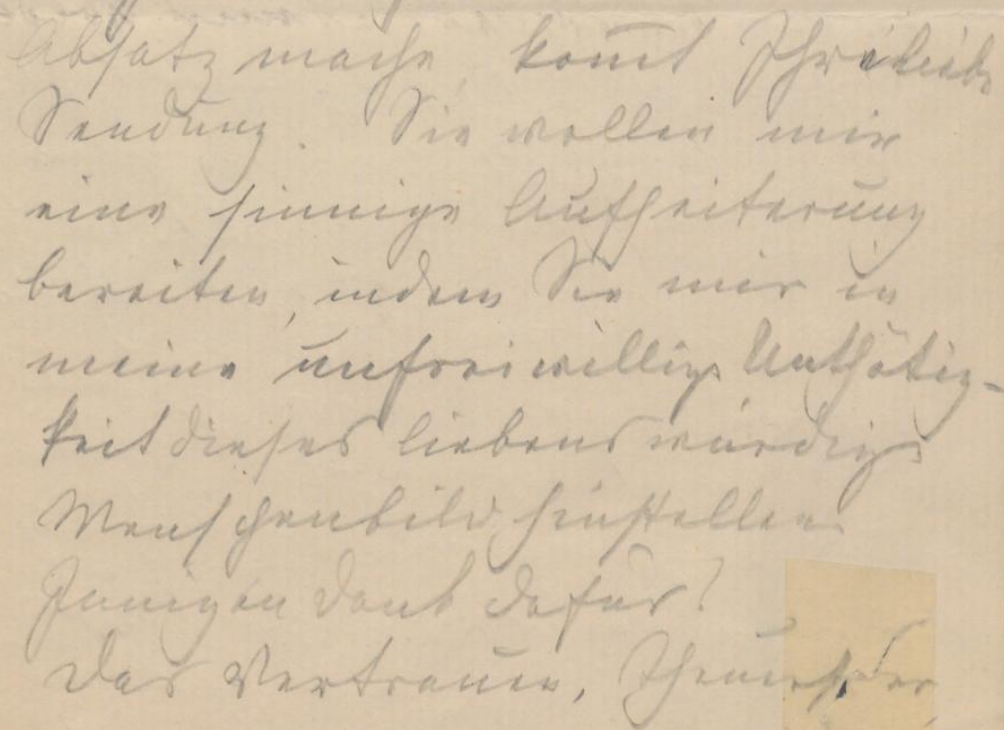 Absatz mache, kom̄t Ihre liebe
Sendung. Sie wollen mir
eine sinnige Aufheiterung
bereiten, indem Sie mir in
meine unfreiwillige Unthätig-
keit dieses liebenswürdige
Menschenbild hinstellen.
Innigen Dank dafür!
Das Vertrauen, Theuerster,